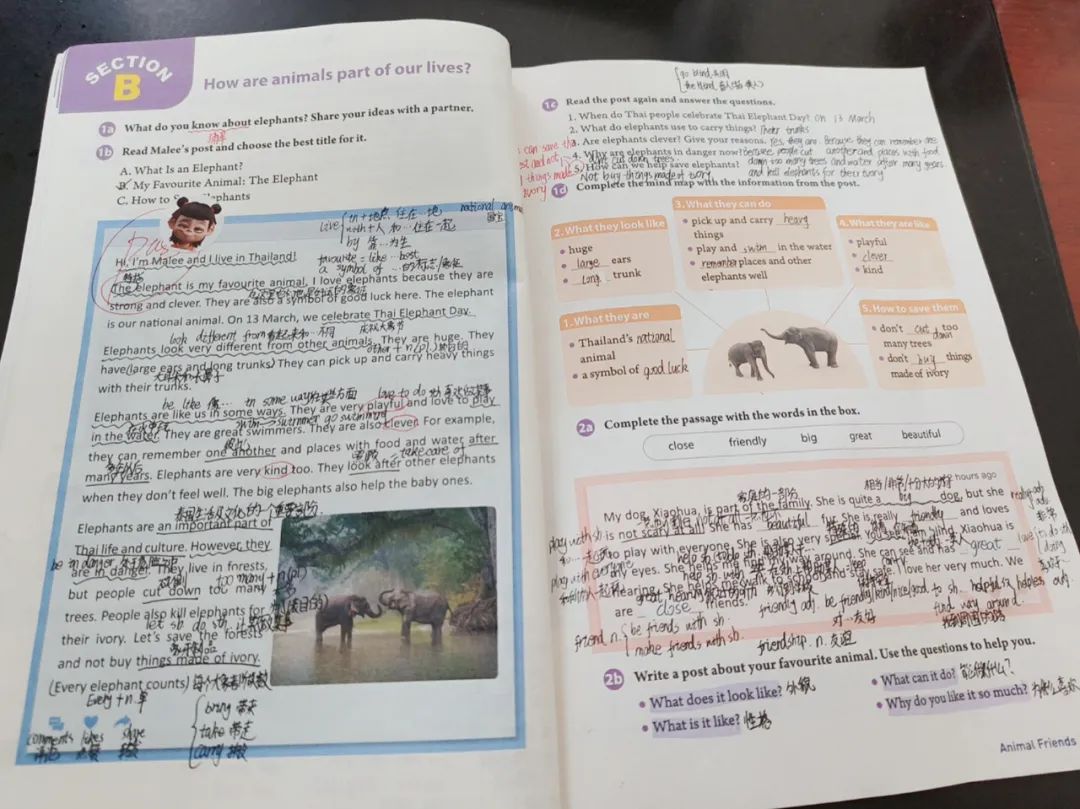 SECTION
B
How are animals part of our lives?
1a What do you know about elephants? Share your ideas with a partner.
1b Read Malee's post and choose the best title for it.
A. What Is an Elephant?
B. My Favourite Animal: The Elephant
C. How to Elephants
live in+地点 住在…地
with+人 和…住在一起
by 靠…为生
favourite = like … best
a symbol of …的标志/象征
Hi, I'm Malee and I live in Thailand!
The elephant is my favourite animal. I love elephants because they are
strong and clever. They are also a symbol of good luck here. The elephant
is our national animal. On 13 March, we celebrate Thai Elephant Day.
look different from 看起来和…不同
Elephants look very different from other animals. They are huge. They
other + n(pl.) 其他的
have (large ears and long trunks) They can pick up and carry heavy things
with their trunks.
be like 像… in some ways 在某些方面 love to do
Elephants are like us in some ways. They are very playful and love to play
swim → swimmer go swimming
in the water. They are great swimmers. They are also clever. For example,
they can remember one another and places with food and water after
= take care of
many years. Elephants are very kind too. They look after other elephants
when they don't feel well. The big elephants also help the baby ones.
Elephants are an important part of
Thai life and culture. However, they
be in danger 处于危险之中
are in danger. They live in forests,
砍倒 too many + n(pl)
but people cut down too many
trees. People also kill elephants for
let sb do sth.
their ivory. Let's save the forests
and not buy things made of ivory.
(Every elephant counts) 每个大象都很重要
Every + n.单
bring 带来
take 带走
carry 搬
comments likes share
评论 点赞
go blind 失明
the blind 盲人
1c Read the post again and answer the questions.
1. When do Thai people celebrate Thai Elephant Day? On 13 March
2. What do elephants use to carry things? Their trunks
3. Are elephants clever? Give your reasons. Yes, they are. Because they can remember one
another and places with food
and water after many years.
4. Why are elephants in danger now? Because people cut
down too many trees
and kill elephants for their ivory
5. How can we help save elephants?
Not cut down trees
Not buy things made of ivory
1d Complete the mind map with the information from the post.
2. What they look like
huge
large ears
long trunk
3. What they can do
pick up and carry heavy
things
play and swim in the water
remember places and other
elephants well
4. What they are like
playful
clever
kind
1. What they are
Thailand's national
animal
a symbol of good luck
5. How to save them
don't cut down too
many trees
don't buy things
made of ivory
2a Complete the passage with the words in the box.
close friendly big great beautiful
家庭的一部分
hours ago
My dog, Xiaohua, is part of the family. She is quite a big dog, but she
is not scary at all! She has beautiful fur. She is really friendly and loves
to play with everyone. She is also very special. You see, I am blind. Xiaohua is
my eyes. She helps me find my way around. She can see and has great
hearing. She helps me walk to school and stay safe. I love her very much. We
are close friends.
friendly adj. be friendly/kind/nice/good to sb. helpful
对…友好
find way around
friend n. be friends with sb.
make friends with sb.
friendship n. 友谊
2b Write a post about your favourite animal. Use the questions to help you.
What does it look like? 外貌
What is it like? 性格
What can it do? 能做什么?
Why do you like it so much?
Animal Friends